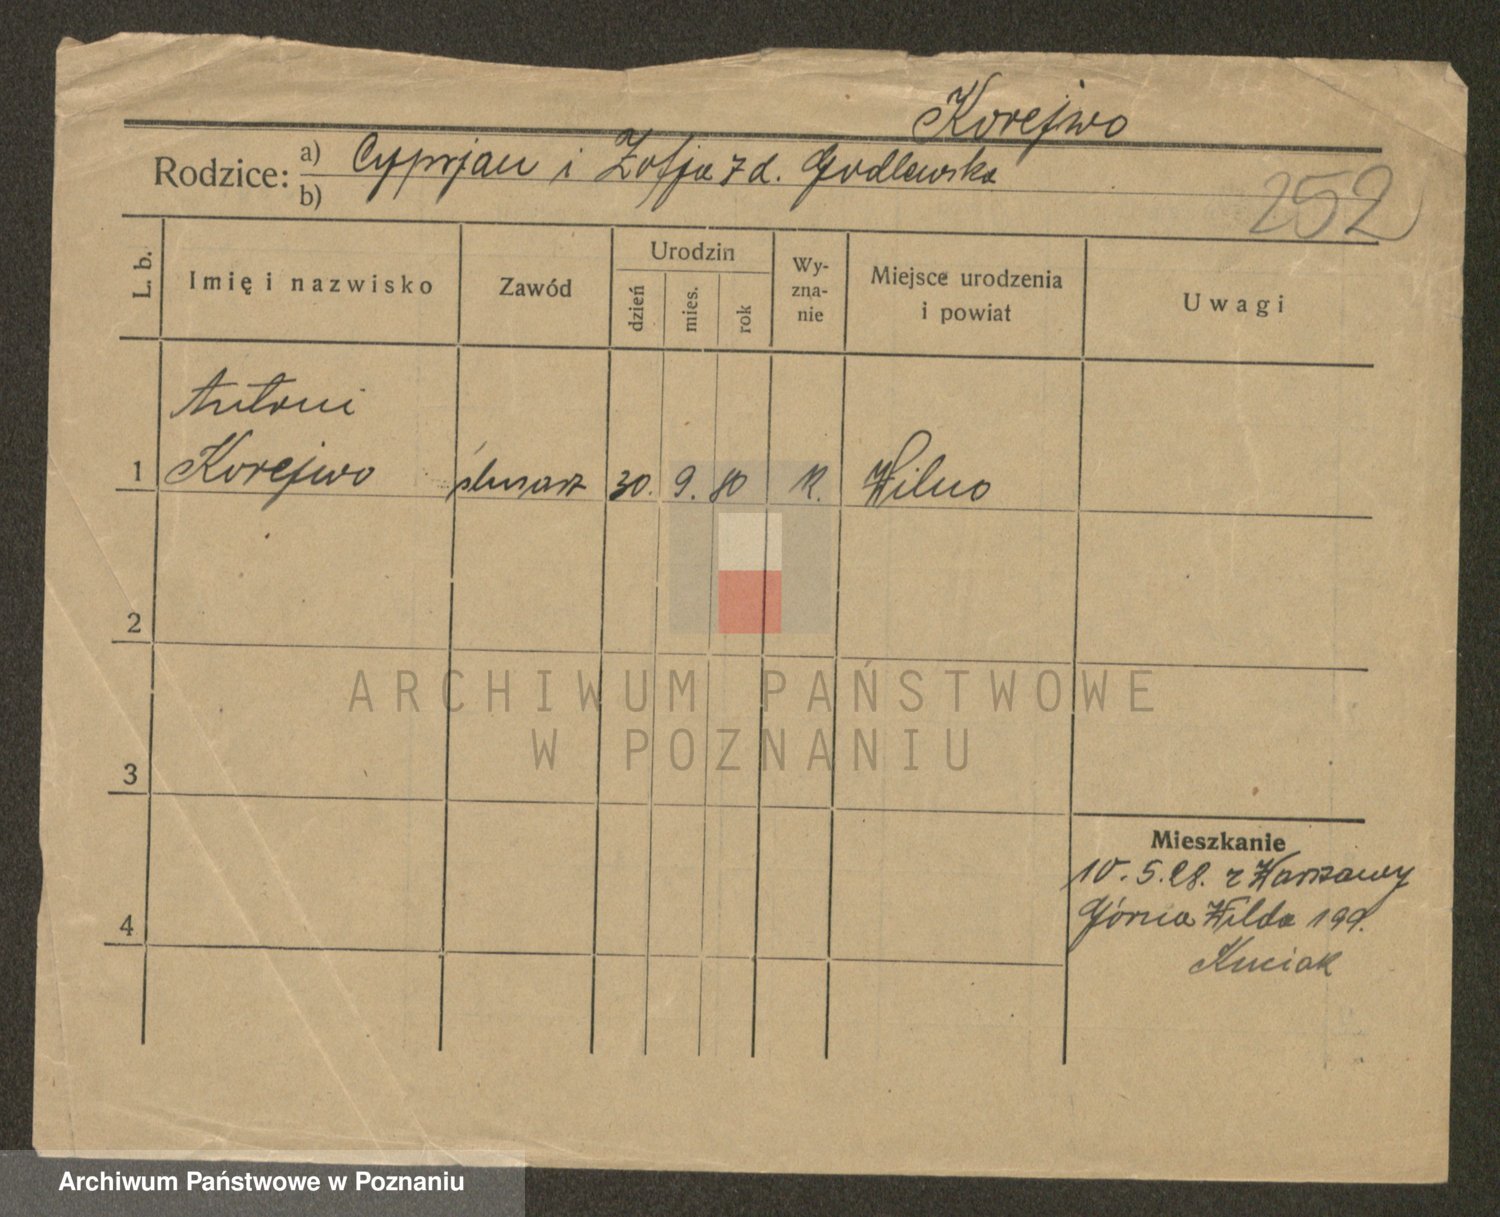 Korejwo
Rodzice: a) Cyprjan i Zofja z d. Godlewska
b)
252
L. b.
Imię i nazwisko
Zawód
Urodzin
dzień
mies.
rok
Wy-
zna-
nie
Miejsce urodzenia
i powiat
Uwagi
Antoni
1 Korejwo ślusarz 30. 9. 80 R. Wilno
2
ARCHIWUM PAŃSTWOWE
W POZNANIU
3
Mieszkanie
10. 5. 28. z Warszawy
4
Górna Wilda 199.
Kuciak
Archiwum Państwowe w Poznaniu